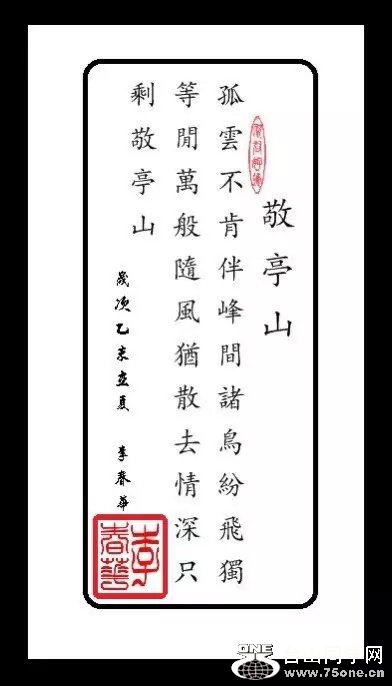 敬亭山
孤雲不肯伴峰間諸鳥紛飛獨
等閒萬般隨風猶散去情深只
剩敬亭山
歲次乙未立夏 李春華
李春華
ONE
www.75one.cn